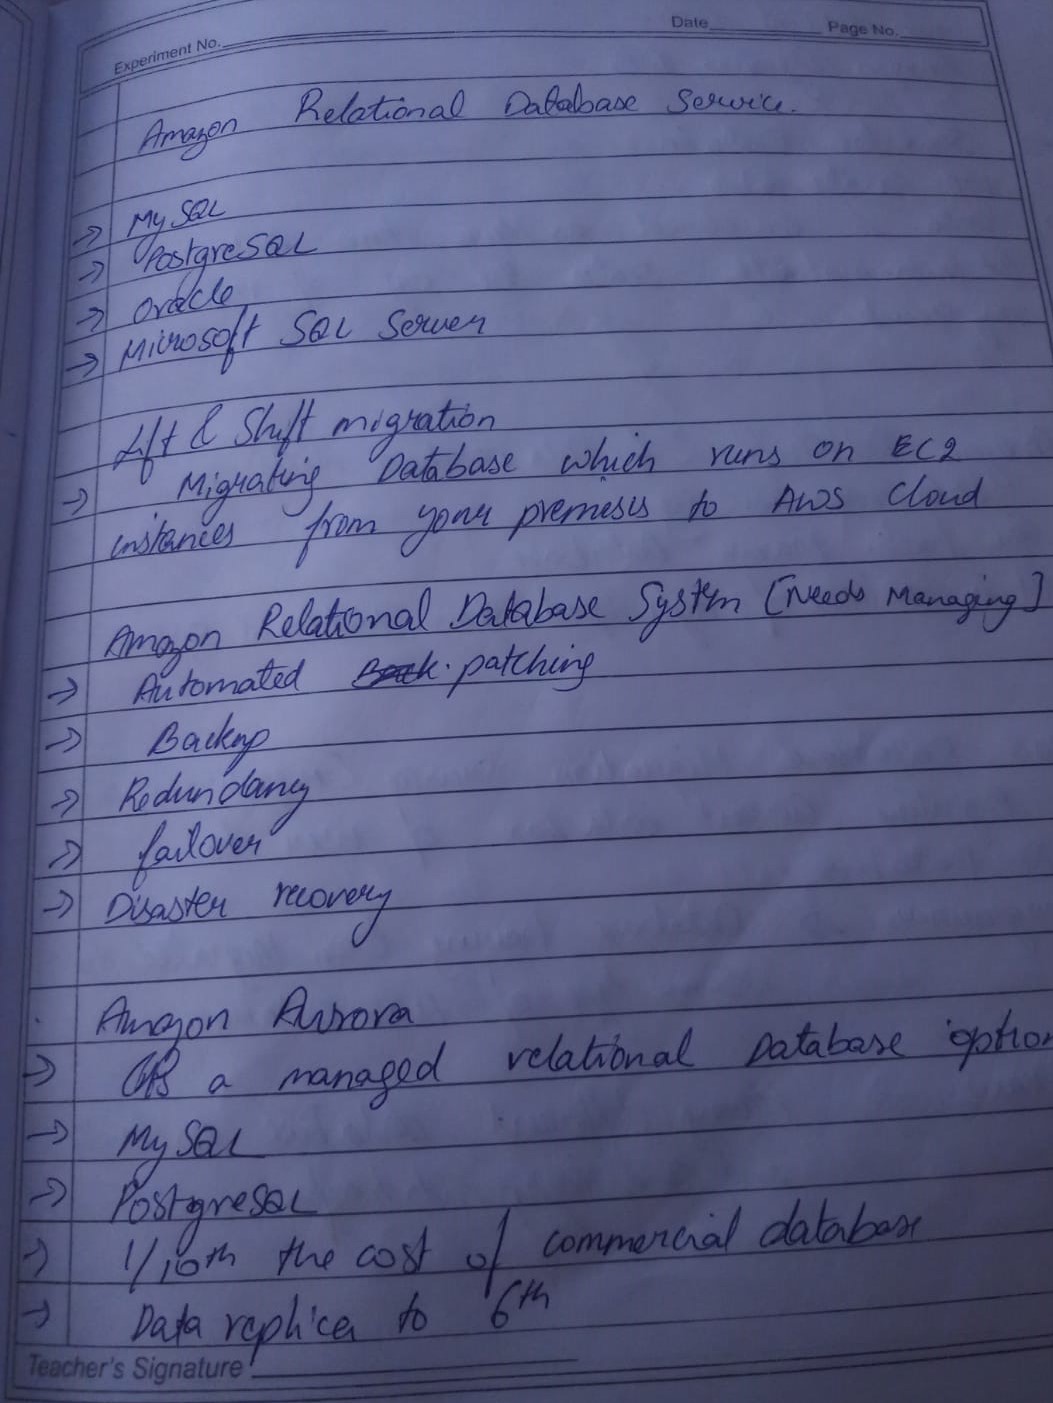 Experiment No.
Date
Page No.
Amazon Relational Database Service.
→ MySQL
→ PostgreSQL
→ Oracle
→ Microsoft SQL Server
Lift & Shift migration
→ Migrating Database which runs on EC2
instances from your premesis to AWS Cloud
Amazon Relational Database System [Needs Managing]
→ Automated patching
→ Backup
→ Redundancy
→ failover
→ Disaster recovery
Amazon Aurora
→ a managed relational Database option
→ MySQL
→ PostgreSQL
→ 1/10th the cost of commercial database
→ Data replica to 6th
Teacher's Signature